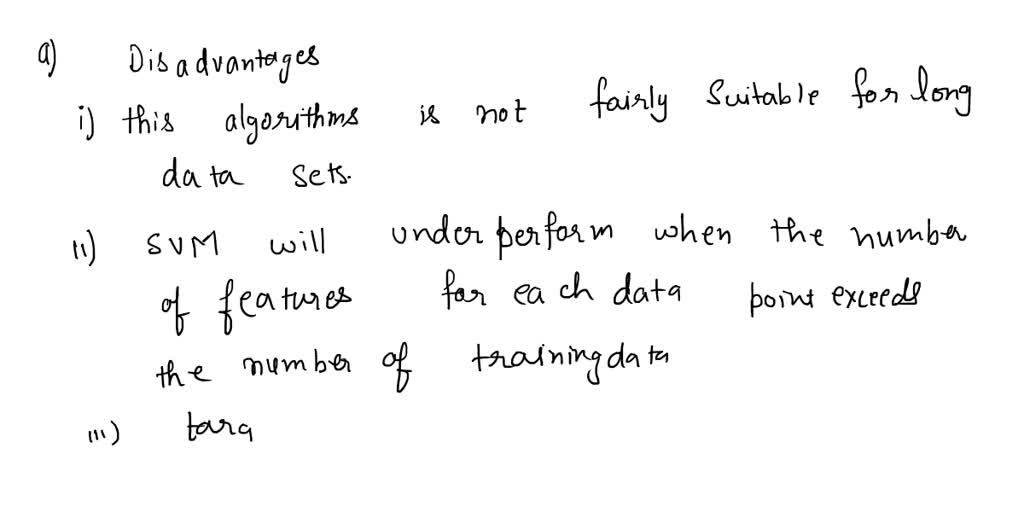 a) Disadvantages
i) this algorithms is not fairly Suitable for long
data sets.
ii) SVM will underperform when the number
of features for each data point exceeds
the number of training data
iii) targ